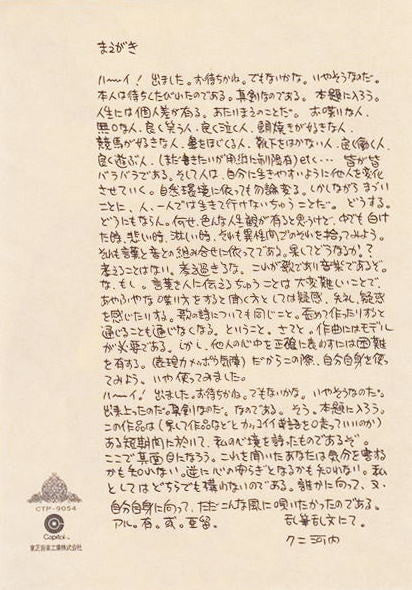 まえがき
ハーイ! 出ました。お待ちかね。でもないかな。いやそうなのだ。
本人は待ちくたびれたのである。真剣なのである。本題に入ろう。
人生には個人差が有る。あたりまえのことだ。お喋いな人、
無口な人、良く笑う人、良く泣く人、鯛焼きが好きな人、
競馬が好きな人、鼻をほじくる人、靴下をはかない人、良く働く人、
良く遊ぶ人、(まだ書きたいが用紙に制限有) etc… 皆が皆
バラバラである。そして人は、自分に生きやすいように他人を変化
させていく。自然環境に依っても勿論変る。しかしながらまずいことに
人、一人では生きて行けないちゅうことだ。どうする。
どうにもならん。何せ、色んな人生観が有ると思うけど、中でも白けた時、
悲しい時、淋しい時、それも異性間でのそれを拾ってみよう。
それは言葉と音との組み合せに依ってである。果してどうなるか?
考えることはない。考え過ぎるな、これが歌であり音楽であるぞ。
な、もし。言葉を人に伝えるちゅうことは大変難しいことで、
あやふやな喋り方をすると聞く方としては疑惑、失礼、疑惑
を感じたりする。歌の時についても同じこと。歪めて作ったりすると
通じることも通じなくなる。ということ。さてと。作曲にはモデル
が必要である。しかし、他人の心中を正確に表わすには困難
を有する。(表現力〆〆がち気障) だからこの際、自分自身を使っ
てみよう。いや使ってみました。
ハーイ! 出ました。お待ちかね。でもないかな。いやそうなのだ。
出来上ったのだ。真剣なのだ、なのである。そう。本題に入ろう。
この作品は (果して作品などとカッコイイ単語を口走っていいのか)
ある短期間に於いて、私の心境を詩ったものであるぞ。
ここで真面目になろう。これを聞いたあなたは気分を害ねる
かも知れない。逆に心の安らぎとなるかも知れない。私
としてはどちらでも構わないのである。誰かに向って、又、
自分自身に向って、ただこんな風に呟いたかったのである。
アル。有。或。亜留。
乱筆乱文にて。
クニ河内
CTP-9054
Capitol
東芝音楽工業株式会社